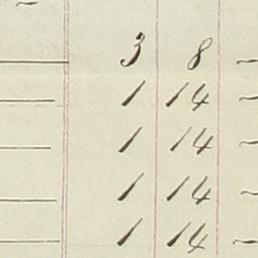 3 8 –
1 14 –
1 14 –
1 14 –
1 14 –